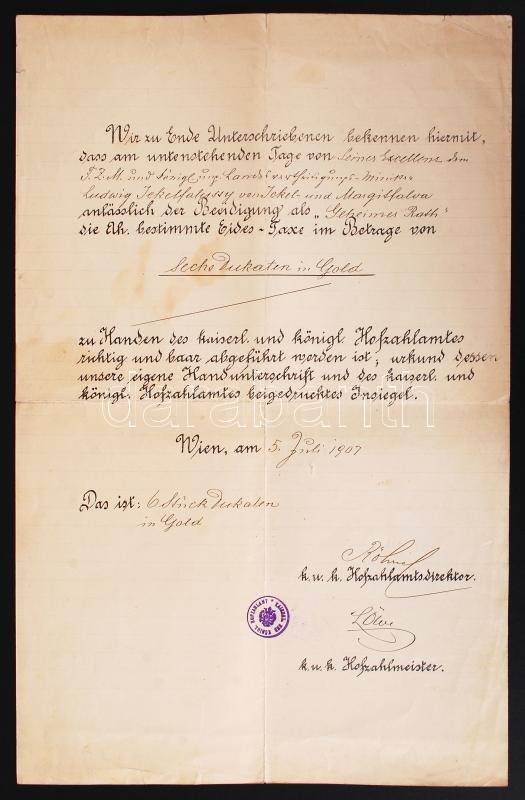 Wir zu Ende Unterschriebenen bekennen hiermit,
dass am untenstehenden Tage von Seiner Excellenz dem
F.Z.M. und königl. ung. Landesvertheidigungs-Minister
Ludwig Jekelfalussy von Jekel- und Margitfalva
anlässlich der Beeidigung als „Geheimer Rath“
die Ah. bestimmte Eides-Taxe im Betrage von
Sechs Dukaten in Gold
zu Handen des kaiserl. und königl. Hofzahlamtes
richtig und baar abgeführt worden ist; urkund dessen
unsere eigene Handunterschrift und des kaiserl. und
königl. Hofzahlamtes beigedrucktes Insiegel.
darabanth
Wien, am 5. Juli 1907
Das ist: 6 Stück Dukaten
in Gold
k. u. k. Hofzahlamtsdirektor.
Löw
k. u. k. Hofzahlmeister.